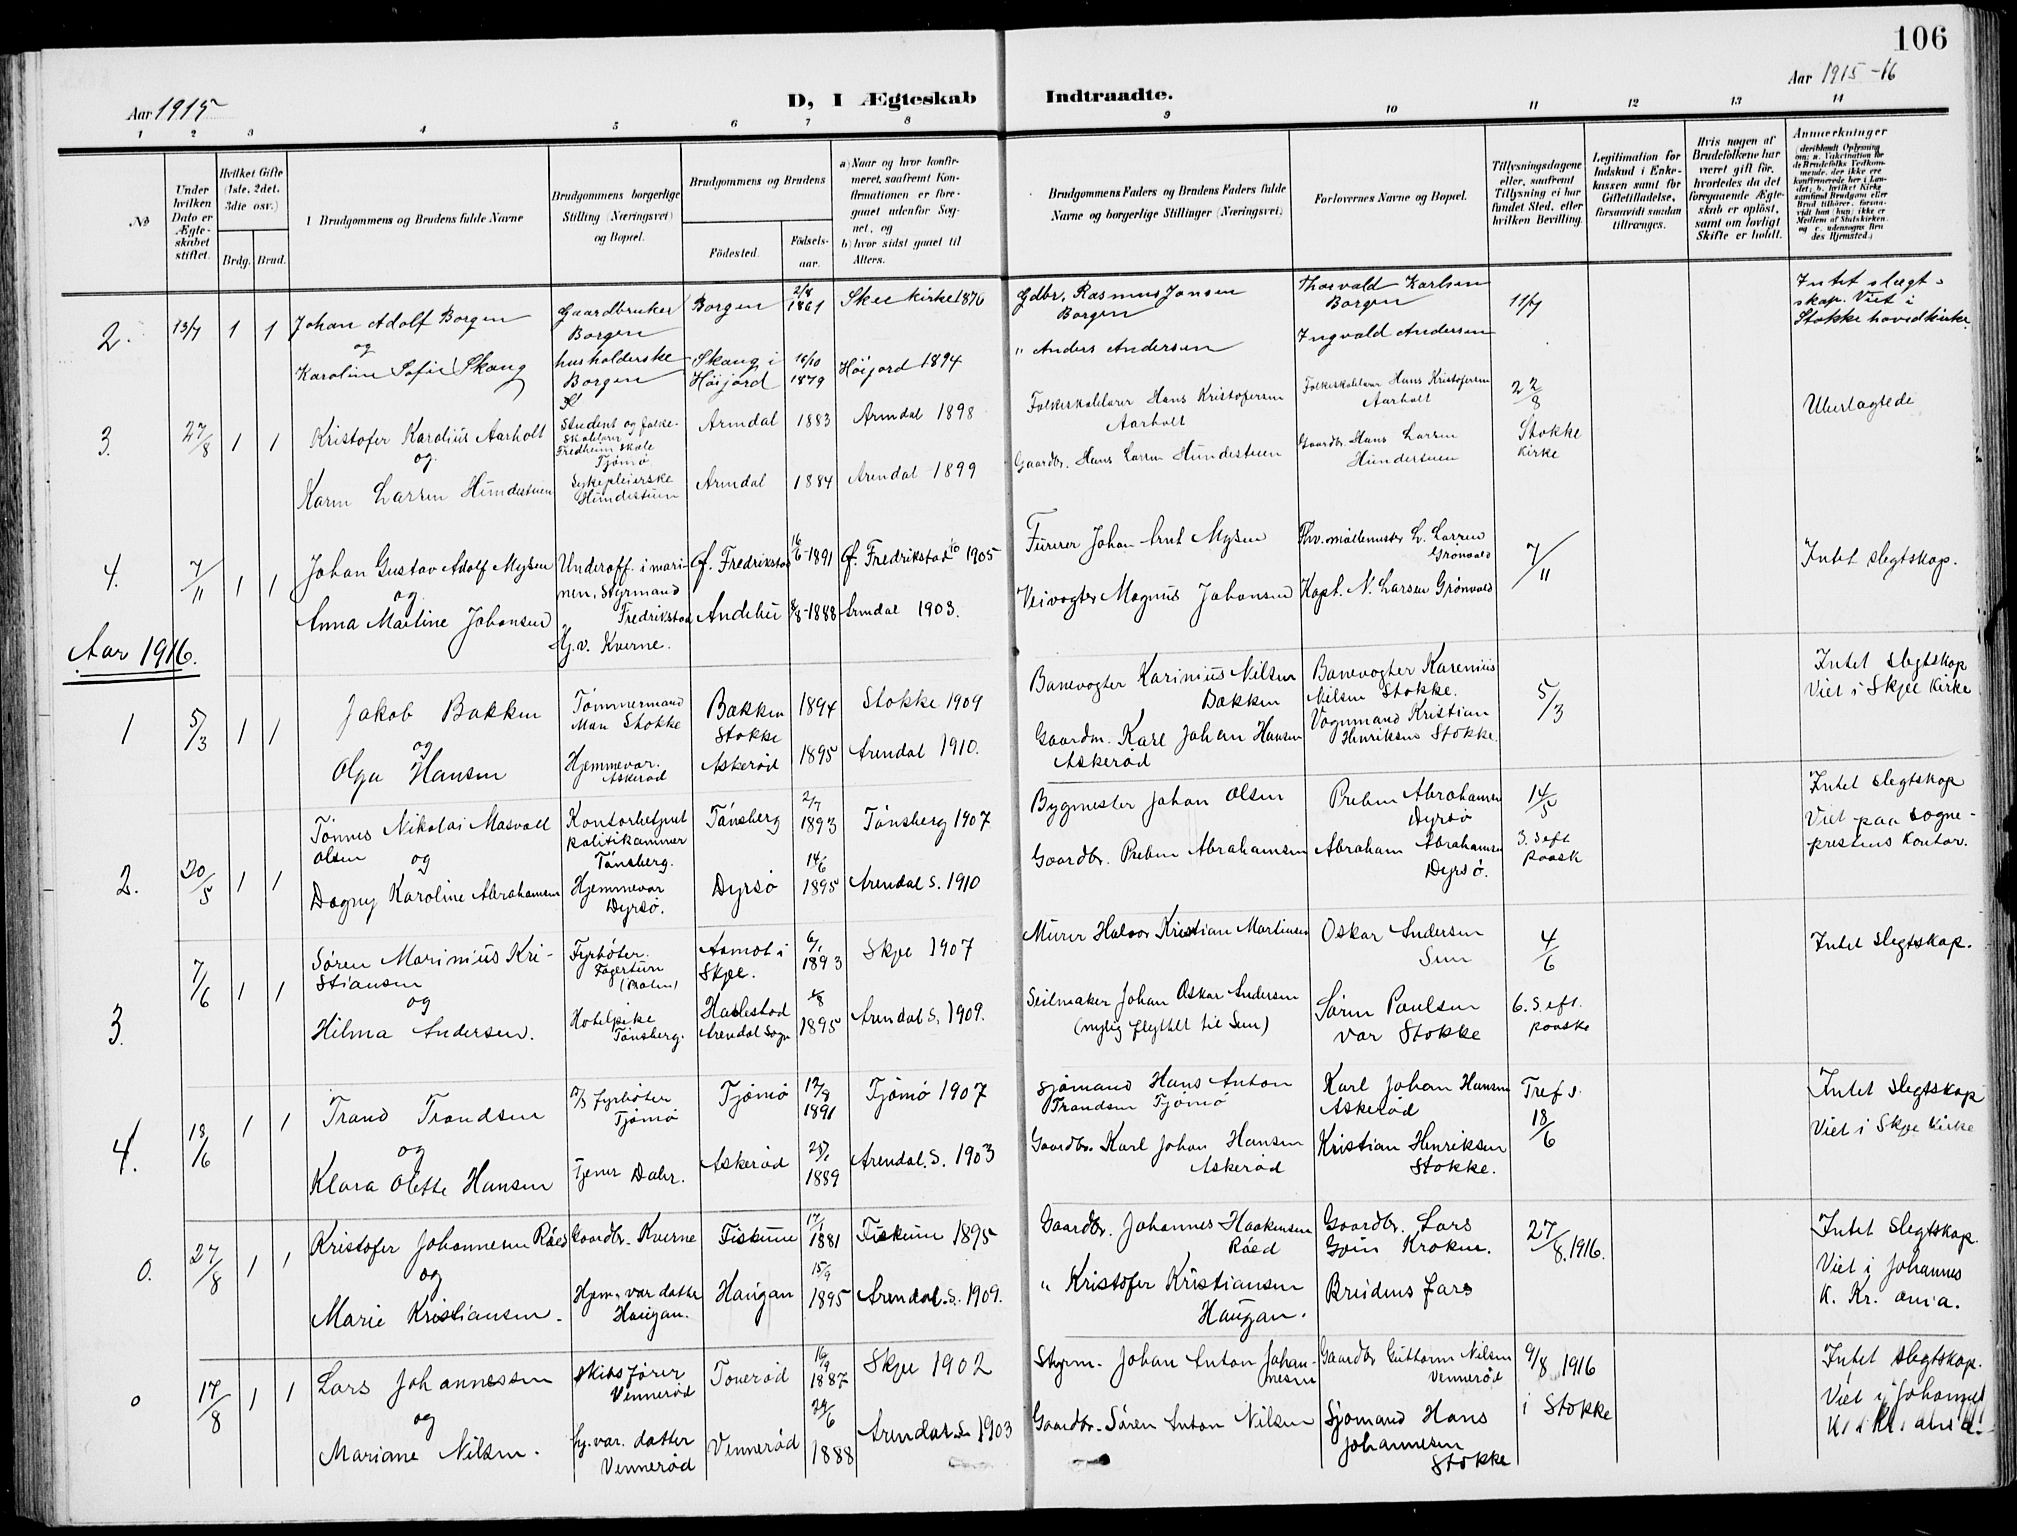 106
Aar 1915
D, I Ægteskab Indtraadte.
Aar 1915-16
1 2 3 4 5 6 7 8 9 10 11 12 13 14
No
Under hvilken Dato er Ægteskabet stiftet.
Hvilket Gifte (1ste, 2det, 3die osv.)
Brdg. Brud.
Brudgommens og Brudens fulde Navne
Brudgommens borgerlige Stilling (Næringsvei) og Bopæl.
Brudgommens og Brudens
Fødested.
Fødselsaar.
a) Naar og hvor konfirmeret, saafremt Konfirmationen er foregaaet udenfor Sognet, og
b) hvor sidst gaaet til Alters.
Brudgommens Faders og Brudens Faders fulde Navne og borgerlige Stillinger (Næringsvei)
Forlovernes Navne og Bopæl.
Tillysningsdagene eller, saafremt Tillysning ei har fundet Sted, efter hvilken Bevilling.
Legitimation for Indskud i Enkekassen samt for Giftetilladelse, forsaavidt saadan tiltrænges.
Hvis nogen af Brudefolkene har været gift før, hvorledes da det foregaaende Ægteskab er opløst, samt om lovligt Skifte er holdt.
Anmerkninger
(deriblandt Oplysning om: a. Vakcination for de Brudefolks Vedkommende, der ikke ere konfirmerede her i Landet; b. hvilket Kirkesamfund Brudgom eller Brud tilhører, forsaavidt han (hun) ikke er Medlem af Statskirken, og c. udensogns Brudes Hjemsted.)
2. 13/7 1 1 Johan Adolf Borgen Gaardbruker Borgen Borgen 2/8 1861 Skee kirke 1876 Gdbr. Rasmus Jansen Borgen Thorvald Karlsen Borgen 11/7 Intet slegtskap. Viet i Stokke hovedkirke.
og
Karoline Sofie Skaug husholderske Borgen Skaug i Høijord 16/10 1879 Høijord 1894 " Anders Andersen Ingvald Andersen
3. 27/8 1 1 Kristofer Karolius Aarholt Student og folkeskolelærer Fredheim skole Tjømø Arendal 1883 Arendal 1898 Folkeskolelærer Hans Kristofersen Aarholt Folkeskolelærer Hans Kristofersen Aarholt 22/8 Stokke kirke Ubeslegtede
og
Karen Larsen Hundestuen Sykepleierske Hundestuen Arendal 1884 Arendal 1899 Gaardbr. Hans Larsen Hundestuen Gaardbr. Hans Larsen Hundestuen
4. 7/11 1 1 Johan Gustav Adolf Mysen Underoff. i marinen, Styrmand Fredrikstad Ø. Fredrikstad 16/6 1891 Ø. Fredrikstad 1905 Furerer Johan Arnt Mysen Fhv. møllemester L. Larsen Grønvold 7/11 Intet slegtskap.
og
Anna Martine Johansen Hj.v. Kverne. Andebu 8/8 1888 Arendal 1903. Veivogter Magnus Johansen Kapt. N. Larsen Grønvold
Aar 1916.
1 5/3 1 1 Jakob Bakken Tømmermand Stokke Bakken Stokke 1894 Stokke 1909 Banevogter Karinius Nilsen Bakken Banevogter Karenius Nilsen Stokke. 5/3 Intet slegtskap Viet i Skjee Kirke
og
Olga Hansen Hjemmevær. Askerød Askerød 1895 Arendal 1910. Gaardm. Karl Johan Hansen Askerød Vognmand Kristian Henriksen Stokke.
2. 20/5 1 1 Tønnes Nikolai Masvall Olsen Kontorbetjent politikammer Tønsberg. Tønsberg 2/7 1893 Tønsberg 1907 Bygmester Johan Olsen Preben Abrahamsen Dyrsø 14/5 3. S. eft. paask Intet slegtskap Viet paa sogneprestens kontor.
og
Dagny Karoline Abrahamsen Hjemmevær Dyrsø. Dyrsø 14/6 1895 Arendal s. 1910 Gaardbr. Preben Abrahamsen Abraham Abrahamsen Dyrsø.
3. 7/6 1 1 Søren Marinius Kristiansen Fyrbøter. Fagertun Aamot i Skjee. 6/1 1893 Skjee 1907 Murer Halvor Kristian Martinsen Oskar Andersen Sem 4/6 Intet slegtskap.
og
Hilma Andersen. Hotelpike Tønsberg. Haslestad Arendal Sogn 1895 Arendal S. 1909. Seilmaker Johan Oskar Andersen (nylig flyttet til Sem) Søren Paulsen Vær Stokke 6. S. eft. paaske
4. 18/6 1 1 Trand Trandsen fyrbøter Tjømø Tjømø 12/8 1891 Tjømø 1907 Sjømand Hans Anton Trandsen Tjømø Karl Johan Hansen Askerød Tref s. 18/6 Intet slegtskap Viet i Skjee Kirke
og
Klara Olette Hansen Tjener Dalir. Askerød 1889 Arendal. S. 1903 Gaardbr. Karl Johan Hansen Askerød Kristian Henriksen Stokke.
0. 27/8 1 1 Kristofer Johannesen Råed Gaardbr. Kverne Fiskum 17/1 1881 Fiskum 1895 Gaardbr. Johannes Haakensen Råed Gaardbr. Lars Krokm. 27/8. 1916. Intet slegtskap. Viet i Johannes K. Kr. ania.
og
Marie Kristiansen. Hjem. vær. datter Haugan. Haugan 15/9 1895 Arendal. S. 1909. " Kristofer Kristiansen Haugan. Brudens fars
0 17/8 1 1 Lars Johannessen Skibsfører Vennerød Tonerød 16/9 1887 Skjee 1902 Styrm. Johan Anton Johannesen Gaardbr Guttorm Nilsen Vennerød 9/8 1916 i Stokke Intet slegtskap. Viet i Johannes K. i Kr. ania.
og
Mariane Nilsen. hj. vær. datter Vennerød Vennerød 29/6 1888 Arendal s. 1903 Gaardbr. Søren Anton Nilsen Sjømand Hans Johannesen Stokke